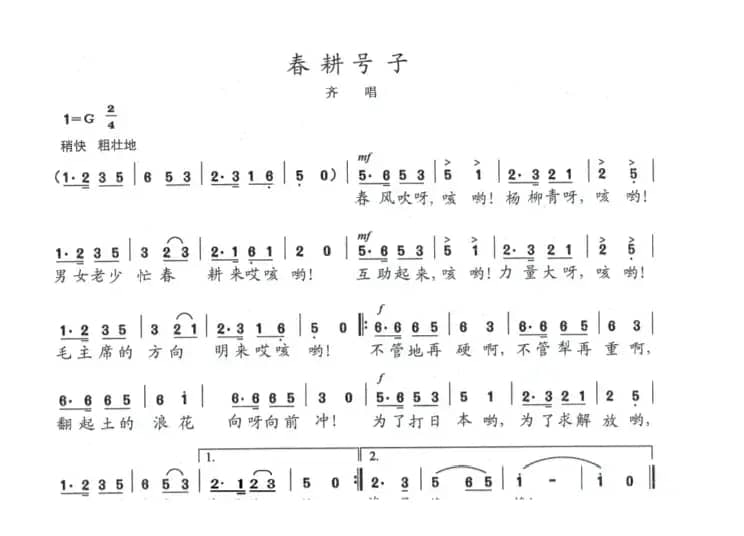 春耕号子
齐 唱
1=G 2/4
稍快 粗壮地
(1·2 3 5 | 6 5 3 | 2·3 1 6 | 5 0) | mf 5·6 5 3 | 5 1 | 2·3 2 1 | 2 5 |
春风吹呀,咳哟!杨柳青呀,咳哟!
1·2 3 5 | 3 2 3 | 2·1 6 1 | 2 0 | mf 5·6 5 3 | 5 1 | 2·3 2 1 | 2 5 |
男女老少 忙春 耕来哎咳 哟! 互助起来,咳哟!力量大呀,咳哟!
1·2 3 5 | 3 2 1 | 2·3 1 6 | 5 0 |: f 6·6 6 5 | 6 3 | 6·6 6 5 | 6 3 |
毛主席的 方向 明来哎咳 哟! 不管地再 硬啊,不管犁再 重啊,
6·6 6 5 | 6 1 | 6·6 6 5 | 3 0 | f 5·6 5 3 | 5 1 | 2·3 2 1 | 2 5 |
翻起土的 浪花 向呀向前 冲! 为了打日 本哟,为了求解 放哟,
1. 2.
1·2 3 5 | 6 5 3 | 2·1 2 3 | 5 0 :| 2·3 | 5 6 5 | 1 - | 1 0 ‖